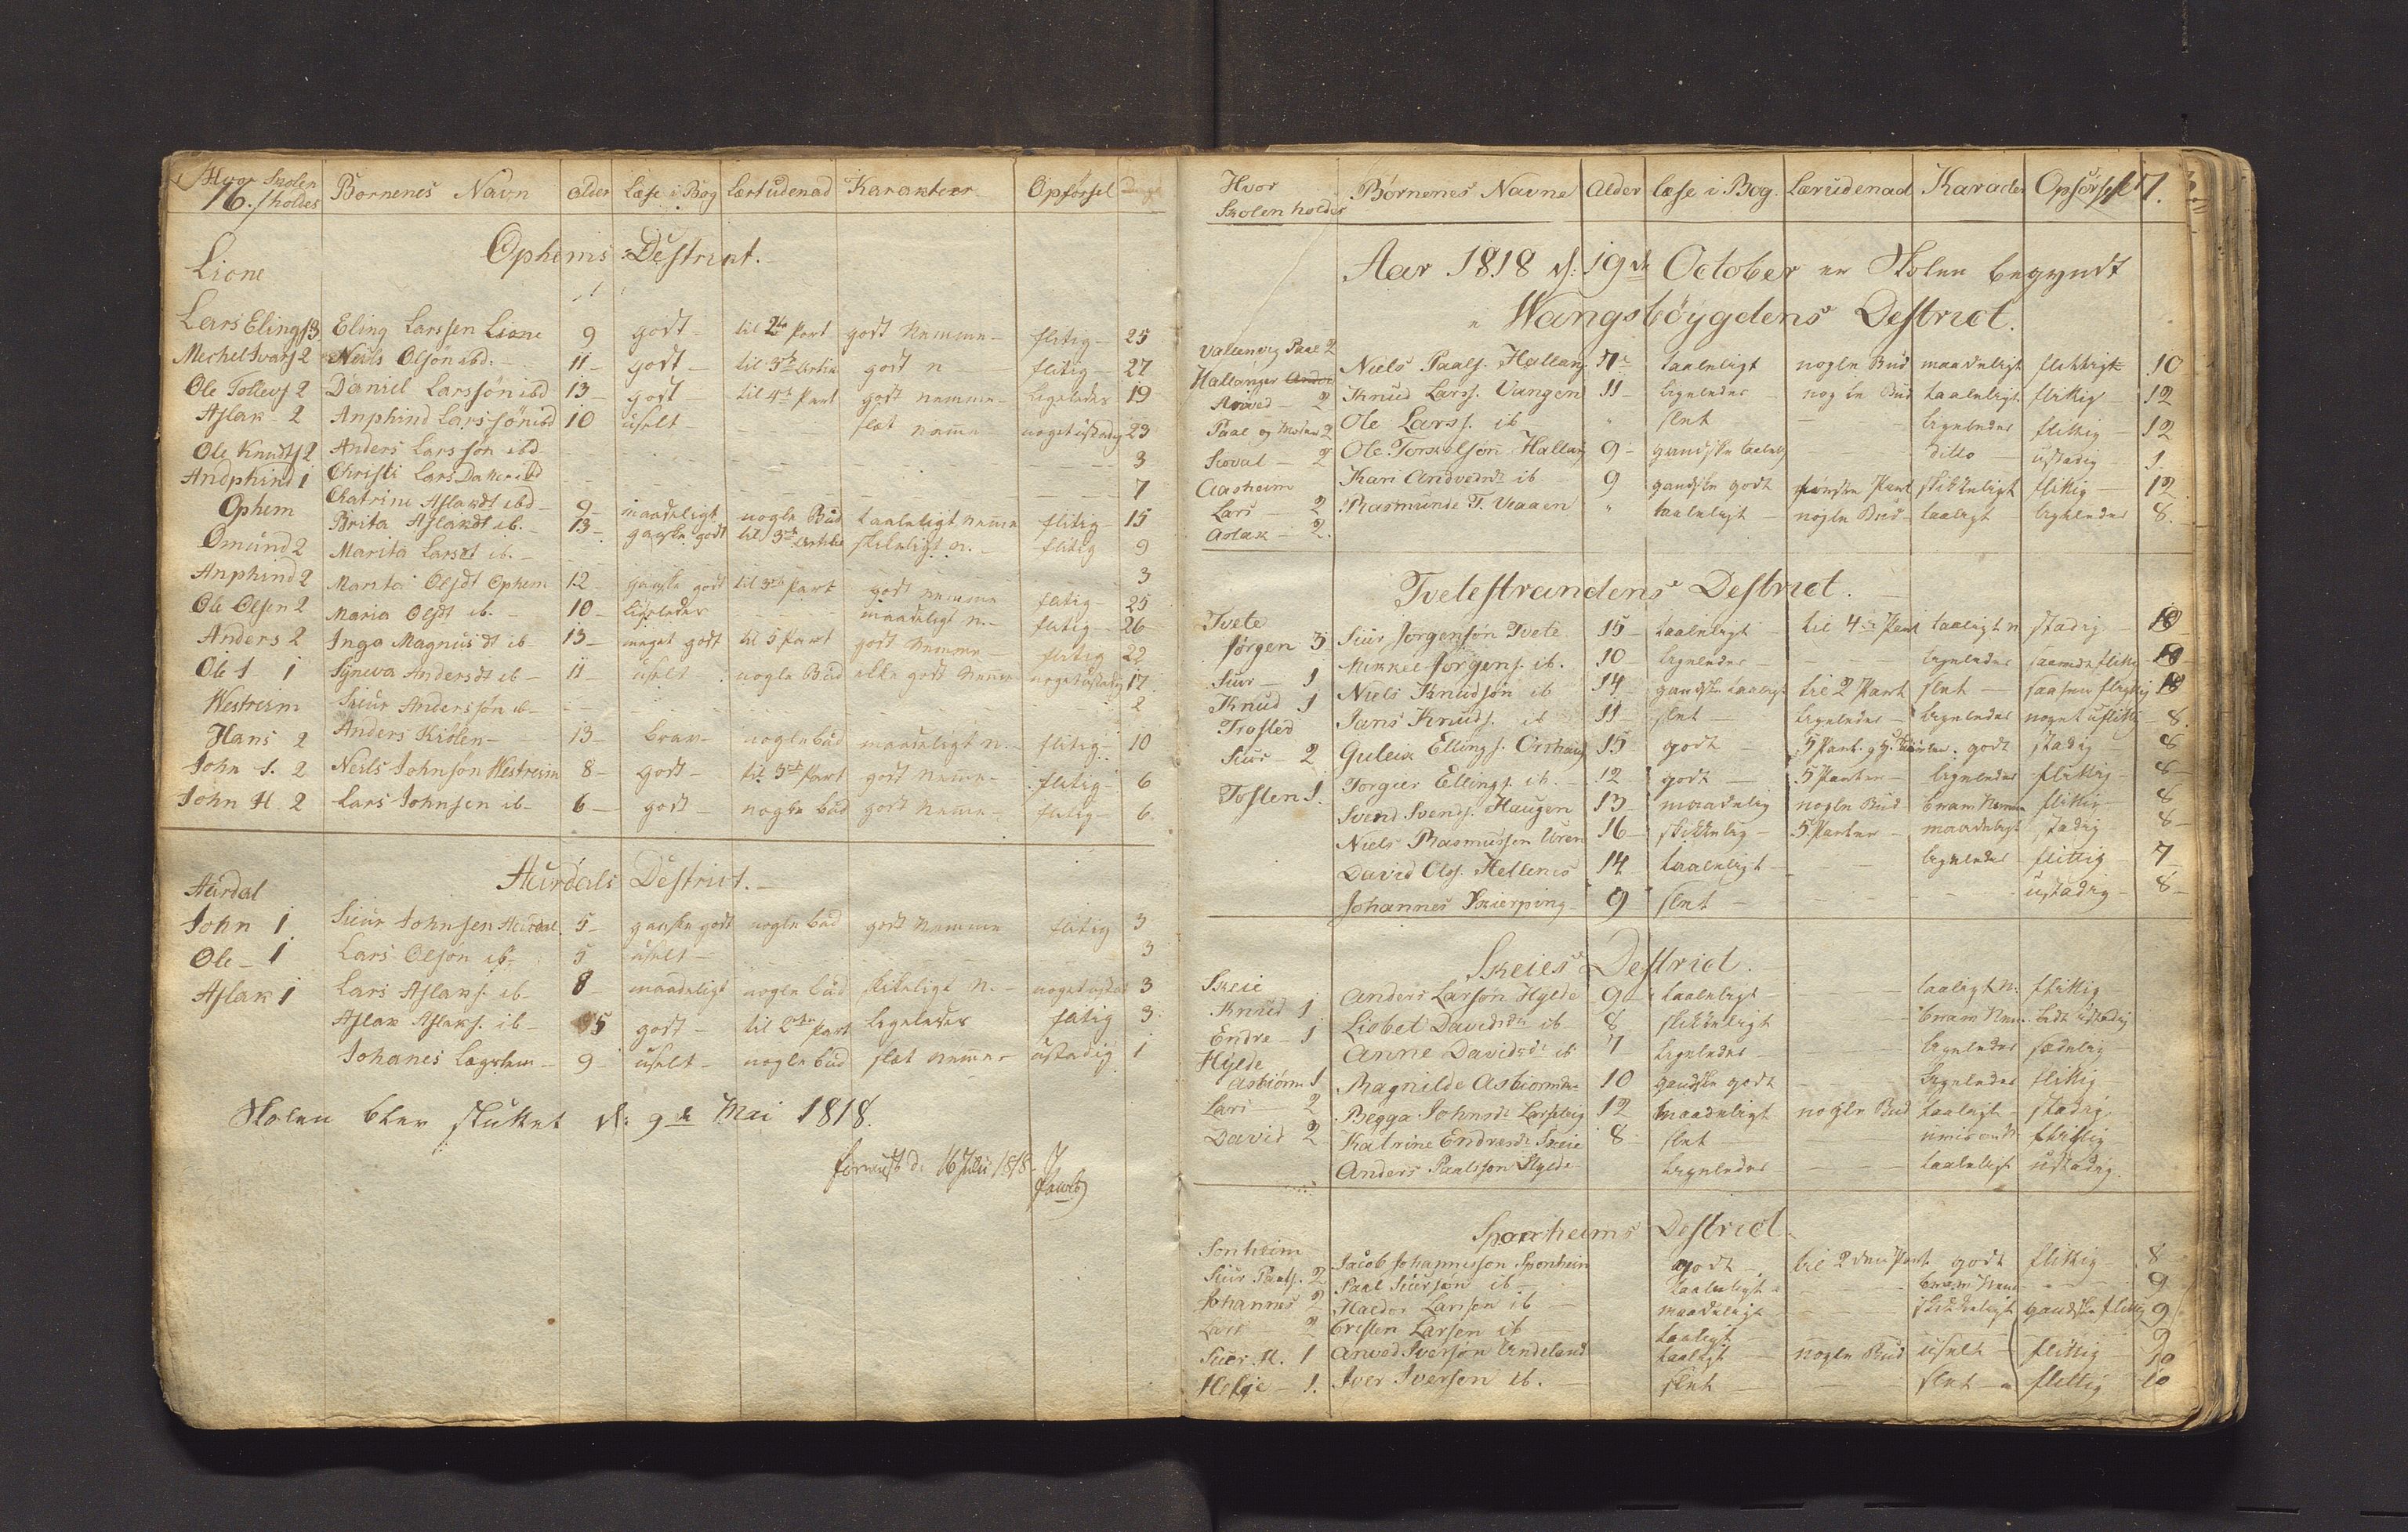 16. Hvor Skolen holdes Børnenes Navn alder læse i Bog lært udenad Karakteer Opførsel Dage
Ophems Destrict.
Lione
Lars Elings 3 Eling Larssen Lione 9 godt til 2den Part godt Nemme flitig 25
Mechel Ivars 2 Neils Olsön ibd. 11 godt til 3de Artik godt n flitig 27
Ole Tollevs 2 Daniel Larssön ibd 13 godt til 4de Part godt nemme ligeledes 19
Aslak 2 Anphind Larssön ibd 10 uselt slæt nemme noget ustadig 23
Ole Knudts 2 Anders Larssön ibd 3
Andphind 1 Christi Lars Datter ibd 7
Ophem Chatrine Aslaksdt ibd 9 maadeligt nogle Bud taaleligt nemme flitig 15
Brita Aslaksdt ib. 13 ganske godt til 3de Artikel skikeligt n. flitig 9
Omund 2 Marita Larsdt ib. 3
Anphind 2 Marita Olsdt Ophem 12 ganske godt til 3de Part godt nemme flitig 25
Ole Olsen 2 Maria Olsdt ib. 10 ligeledes maadeligt n. flitig 26
Anders 2 Inga Magnusdt ib 13 meget godt til 5 Part godt Nemme flitig 22
Ole S. 1 Syneva Andersdt ib 11 uselt nogle Bud ikke godt Nemme noget ustadig 17
Westreim Siur Anderssön ib 2
Hans 2 Anders Kiölen 13 brav nogle bud maadeligt n. flitig 10
John S. 2 Neils Johnsön Westreim 8 godt til 3de Part godt Nemme flitig 6
John H. 2 Lars Johnsen ib 6 godt nogle bud godt Nemme flitig 6.
Aurdals Destrict.
Aurdal
John 1 Sieur Johnsen Aurdal 5 ganske godt nogle bud godt Nemme flitig 3
Ole 1 Lars Olsön ib. 5 uselt 3
Aslak 1 Lars Aslaks. ib 8 maadeligt nogle bud skikeligt N. noget ustadig 3
Aslak Aslaks. ib 5 godt til 2den Part ligeledes flitig 3
Johanes 9 uselt nogle bud slæt nemme ustadig 1
Skolen blev sluttet d: 9de Mai 1818.
d: 16 Julii 1818
Hvor Skolen holdes Børnenes Navne Alder læse i Bog. Lær udenad Karacter Opførsel 17.
Aar 1818 d: 19de October er Skolen begyndt
i Wangsböygdens Destrict.
Vallenvig Paal 2
Hallanger Niels Paals. Hallang 7 taaleligt nogle Bud maadeligt flittigt 10
Arved 2 Knud Larss. Vangen 11 ligeledes nogle Bud taaleligt flittig 12
Paal og 2 Ole Larss. ib " slet ligeledes flittig 12
Scoval 2 Ole Torkelsön Hallang 9 gandske taalelig ditto ustadig 1
Aasheim Kari Andvedsdt ib 9 gandske godt første Part skikkeligt flittig 12
Lars 2 Rasmunde T. Vraaen " taaleligt nogle Bud taaligt ligeledes 8.
Aslak 2.
Tvetestrandens Destrict.
Tvete
Jørgen 3 Siur Jørgensön Tvete 15 taaleligt til 4de Part taaligt n stadig 18
Siur 1 Mikkel Jørgens. ib. 10 ligeledes ligeledes 18
Knud 1 Niels Knudsön ib 14 gandske taaligt til 2 Part slet 18
Trofted Jans Knuds. ib 11 slet ligeledes ligeledes noget uflittig 8.
Siur 2 Guleik Ellings. Orrhaug 15 godt 5 Part. godt stadig 8
Tosten 1. Torgier Ellings. ib. 12 godt 5 Parter ligeledes flittig 8
Svend Svends. Haugen 13 maadelig nogle Bud bram Nemme flittig 8
Niels Rasmussen Uren 16 skikkelig 5 Parter maadeligt stadig 8
David Ols. Hellenes 14 taaleligt ligeledes flittig 7
Johannes Skierping 9 slet ustadig 8
Skeies Destrict.
Skeie
Knud 1 Anders Larsön Hylde 9 taaleligt taaligt N. flittig
Endre 1 Lisbet Davidsdt ib 8 skikkeligt bram Nem. lidt ustadig
Hylde Anne Davidsdt ib 7 ligeledes ligeledes sædelig
Asbiörn 1 Ragnilde Asbiornsdtr 10 gandske godt ligeledes flittig
Lars 2 Begga Johnsdt 12 maadeligt nogle Bud taaligt stadig
David 2 Katrine Endresdt Skeie 8 slet flittig
Anders Paalssön Hylde ligeledes taaleligt ustadig.
Sponheims Destrict
Sonheim Jacob Johannessön Sponheim godt til 2den Part godt flittig 8
Siur Pauls. 2 Paal Siursön ib taaleligt bram Nem 9
Johannes 2 Haldor Larsen ib maadeligt skikkeligt gandske flittig 9
Lars 2 Cresten Larsen ib taaligt 9
Siur H. 1 Arwed Iversön Undeland taaligt nogle Bud uselt flittig 10
Helge 1. Iver Iversen ib. slet slet flittig 10